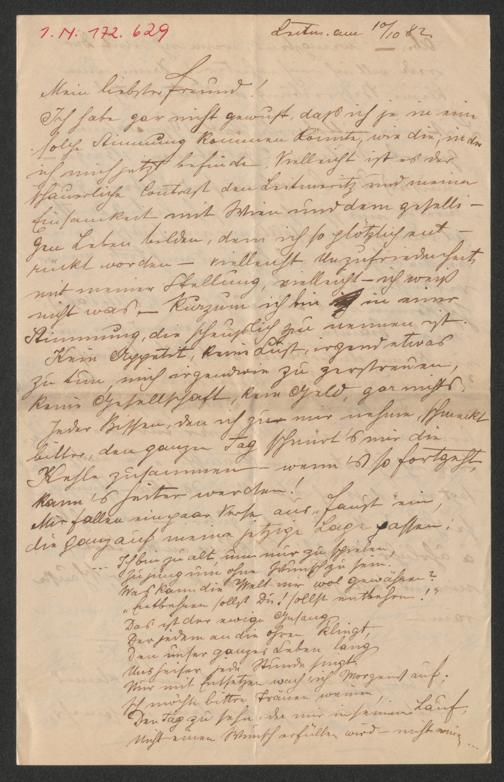 I. N. 172.629
Leitm. am 10/10 82
Mein liebster Freund!
Ich habe gar nicht gewußt, daß ich je in eine
solche Stimmung kommen könnte, wie die, in der
ich mich jetzt befinde. Vielleicht ist es der
schauerliche Contrast den Leitmeritz und meine
Einsamkeit mit Wien und dem geselli-
gen Leben bilden, dem ich so plötzlich ent-
rückt worden – vielleicht Unzufriedenheit
mit meiner Stellung, vielleicht – ich weiß
nicht was – kurzum ich bin in einer
Stimmung, die scheußlich zu nennen ist.
Kein Appetit, keine Lust, irgend etwas
zu tun, mich irgendwie zu zerstreuen,
keine Gesellschaft, kein Geld, gar nichts,
Jeder Bissen, den ich zu mir nehme, schmeckt
bitter, den ganzen Tag schnürt's mir die
Kehle zusammen – wenn's so fortgeht,
kann's heiter werden!
Mir fallen ein paar Verse aus „Faust" ein,
die ganz auf meine jetzige Lage passen:
... Ich bin zu alt, um nur zu spielen,
Zu jung um ohne Wunsch zu sein.
Was kann die Welt mir wol gewähren?
„Entbehren sollst Du! sollst entbehren!"
Das ist der ewige Gesang
Der jedem an die Ohren klingt,
Den unser ganzes Leben lang
Uns heiser jede Stunde singt.
Nur mit Entsetzen wach ich Morgens auf.
Ich möchte bittre Tränen weinen,
Den Tag zu sehn, der mir in seinem Lauf,
Nicht einen Wunsch erfüllen wird – nicht einen ...